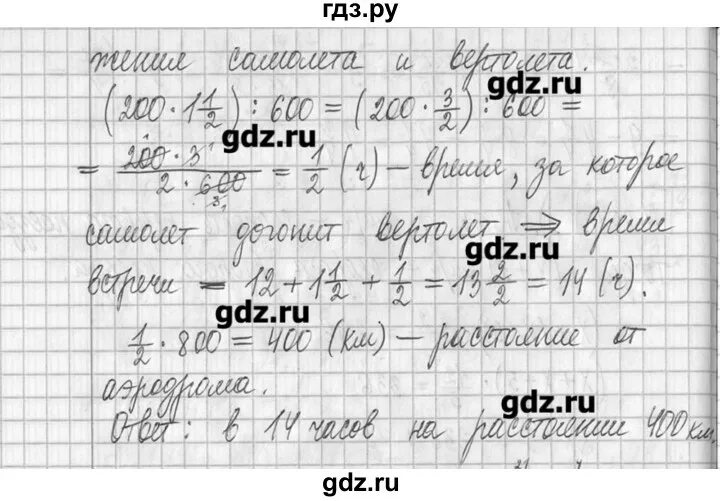 гдз.ру
жения самолета и вертолета.
gdz.ru
(200 · 1 1/2) : 600 = (200 · 3/2) : 600 =
gdz.ru
= 200 · 3 / 2 · 600 = 1/2 (ч) – время, за которое
самолет догонит вертолет ⇒ время
gdz.ru
встречи – 12 + 1 1/2 + 1/2 = 13 2/2 = 14 (ч).
gdz.ru
1/2 · 800 = 400 (км) – расстояние от
аэродрома.
gdz.ru
Ответ: в 14 часов на расстоянии 400 км,
gdz.ru